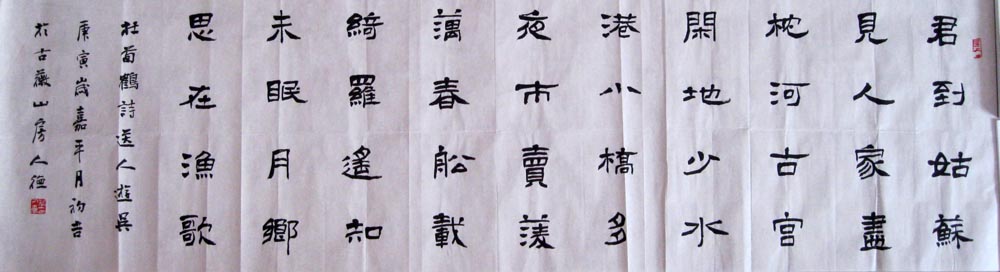 君到姑蘇
見人家盡
枕河古宮
閑地少水
港小橋多
夜市賣菱
藕春船載
綺羅遙知
未眠月鄉
思在漁歌
杜荀鶴詩送人遊吳
庚寅歲嘉平月初吉
於古薇山房人德